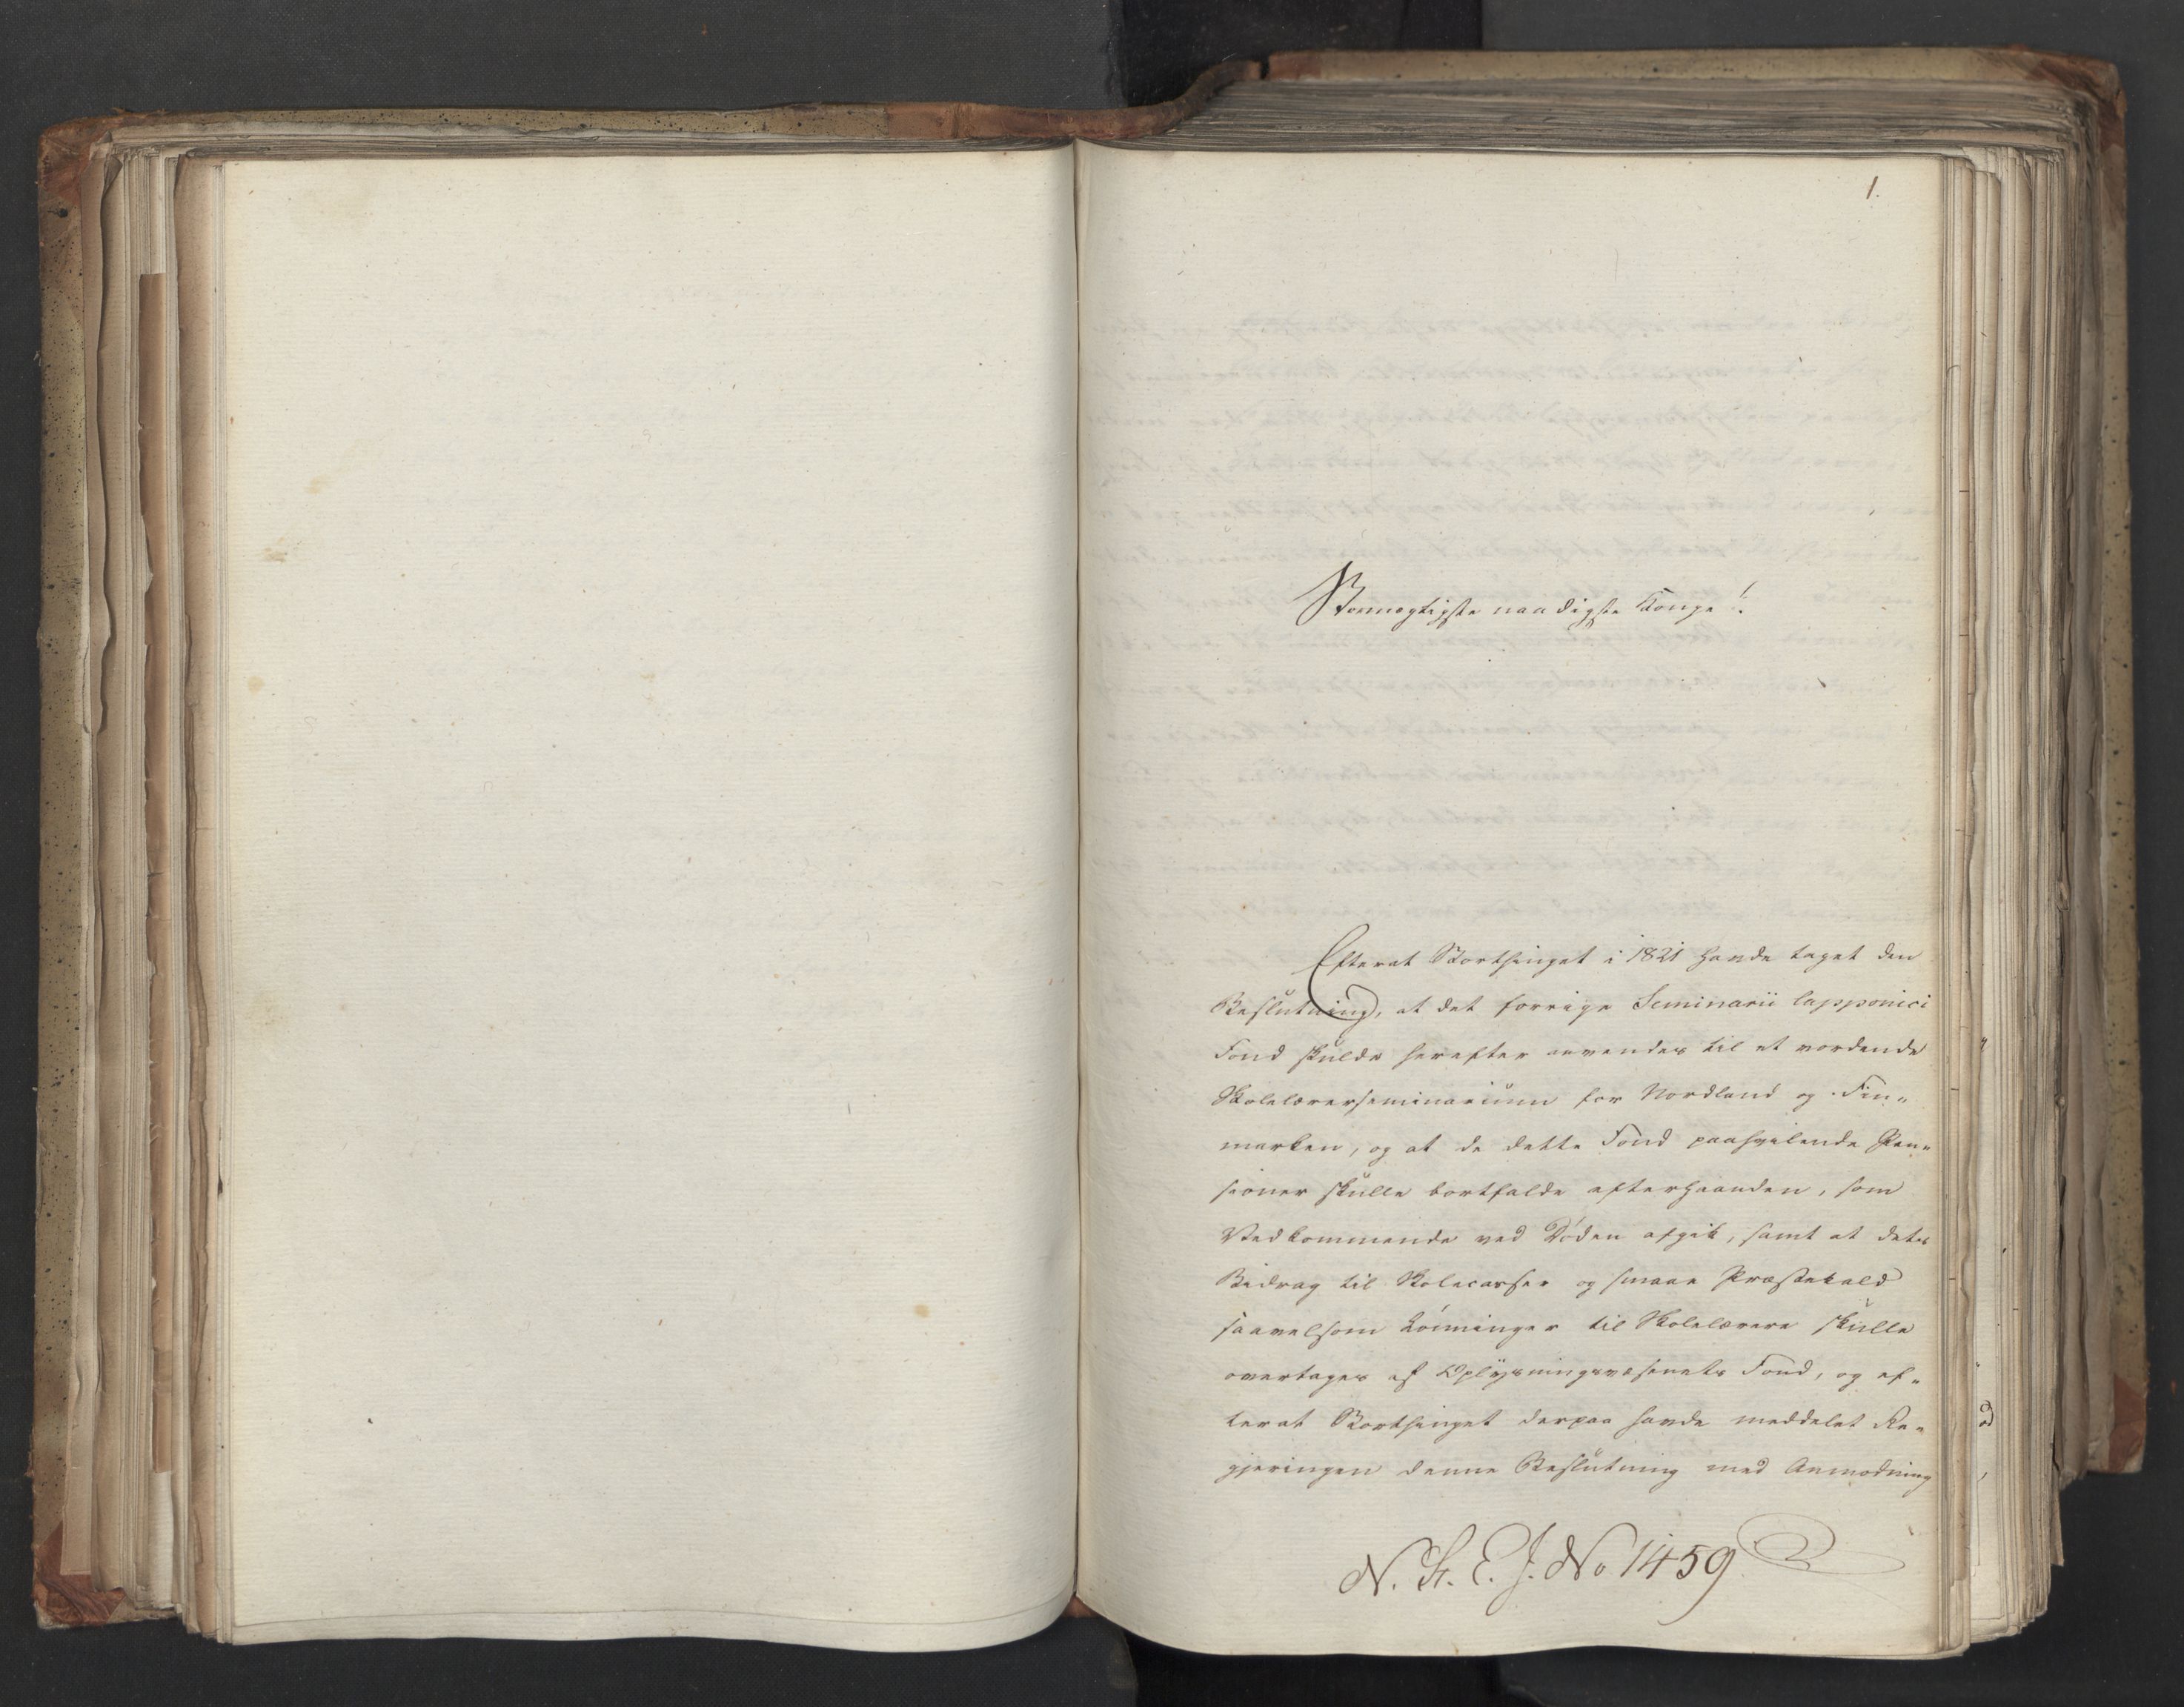 1.
Stormægtigste naadigste Konge!
Efterat Storthinget i 1821 havde taget den
Beslutning, at det forrige Seminarii lapponici
Fond skulde herefter anvendes til et vordende
Skolelærerseminarium for Nordland og Fin„
marken, og at de dette Fond paahvilende Pen„
sioner skulle bortfalde efterhaanden, som
Vedkommende ved Døden afgik, samt at dets
Bidrag til Skolecasser og smaae Præstekald
saavelsom Lønninger til Skolelærere skulle
overtages af Oplysningsvæsenets Fond, og ef„
terat Storthinget derpaa havde meddelet Re„
gjeringen denne Beslutning med Anmodning
N. St. E. J. No 1459